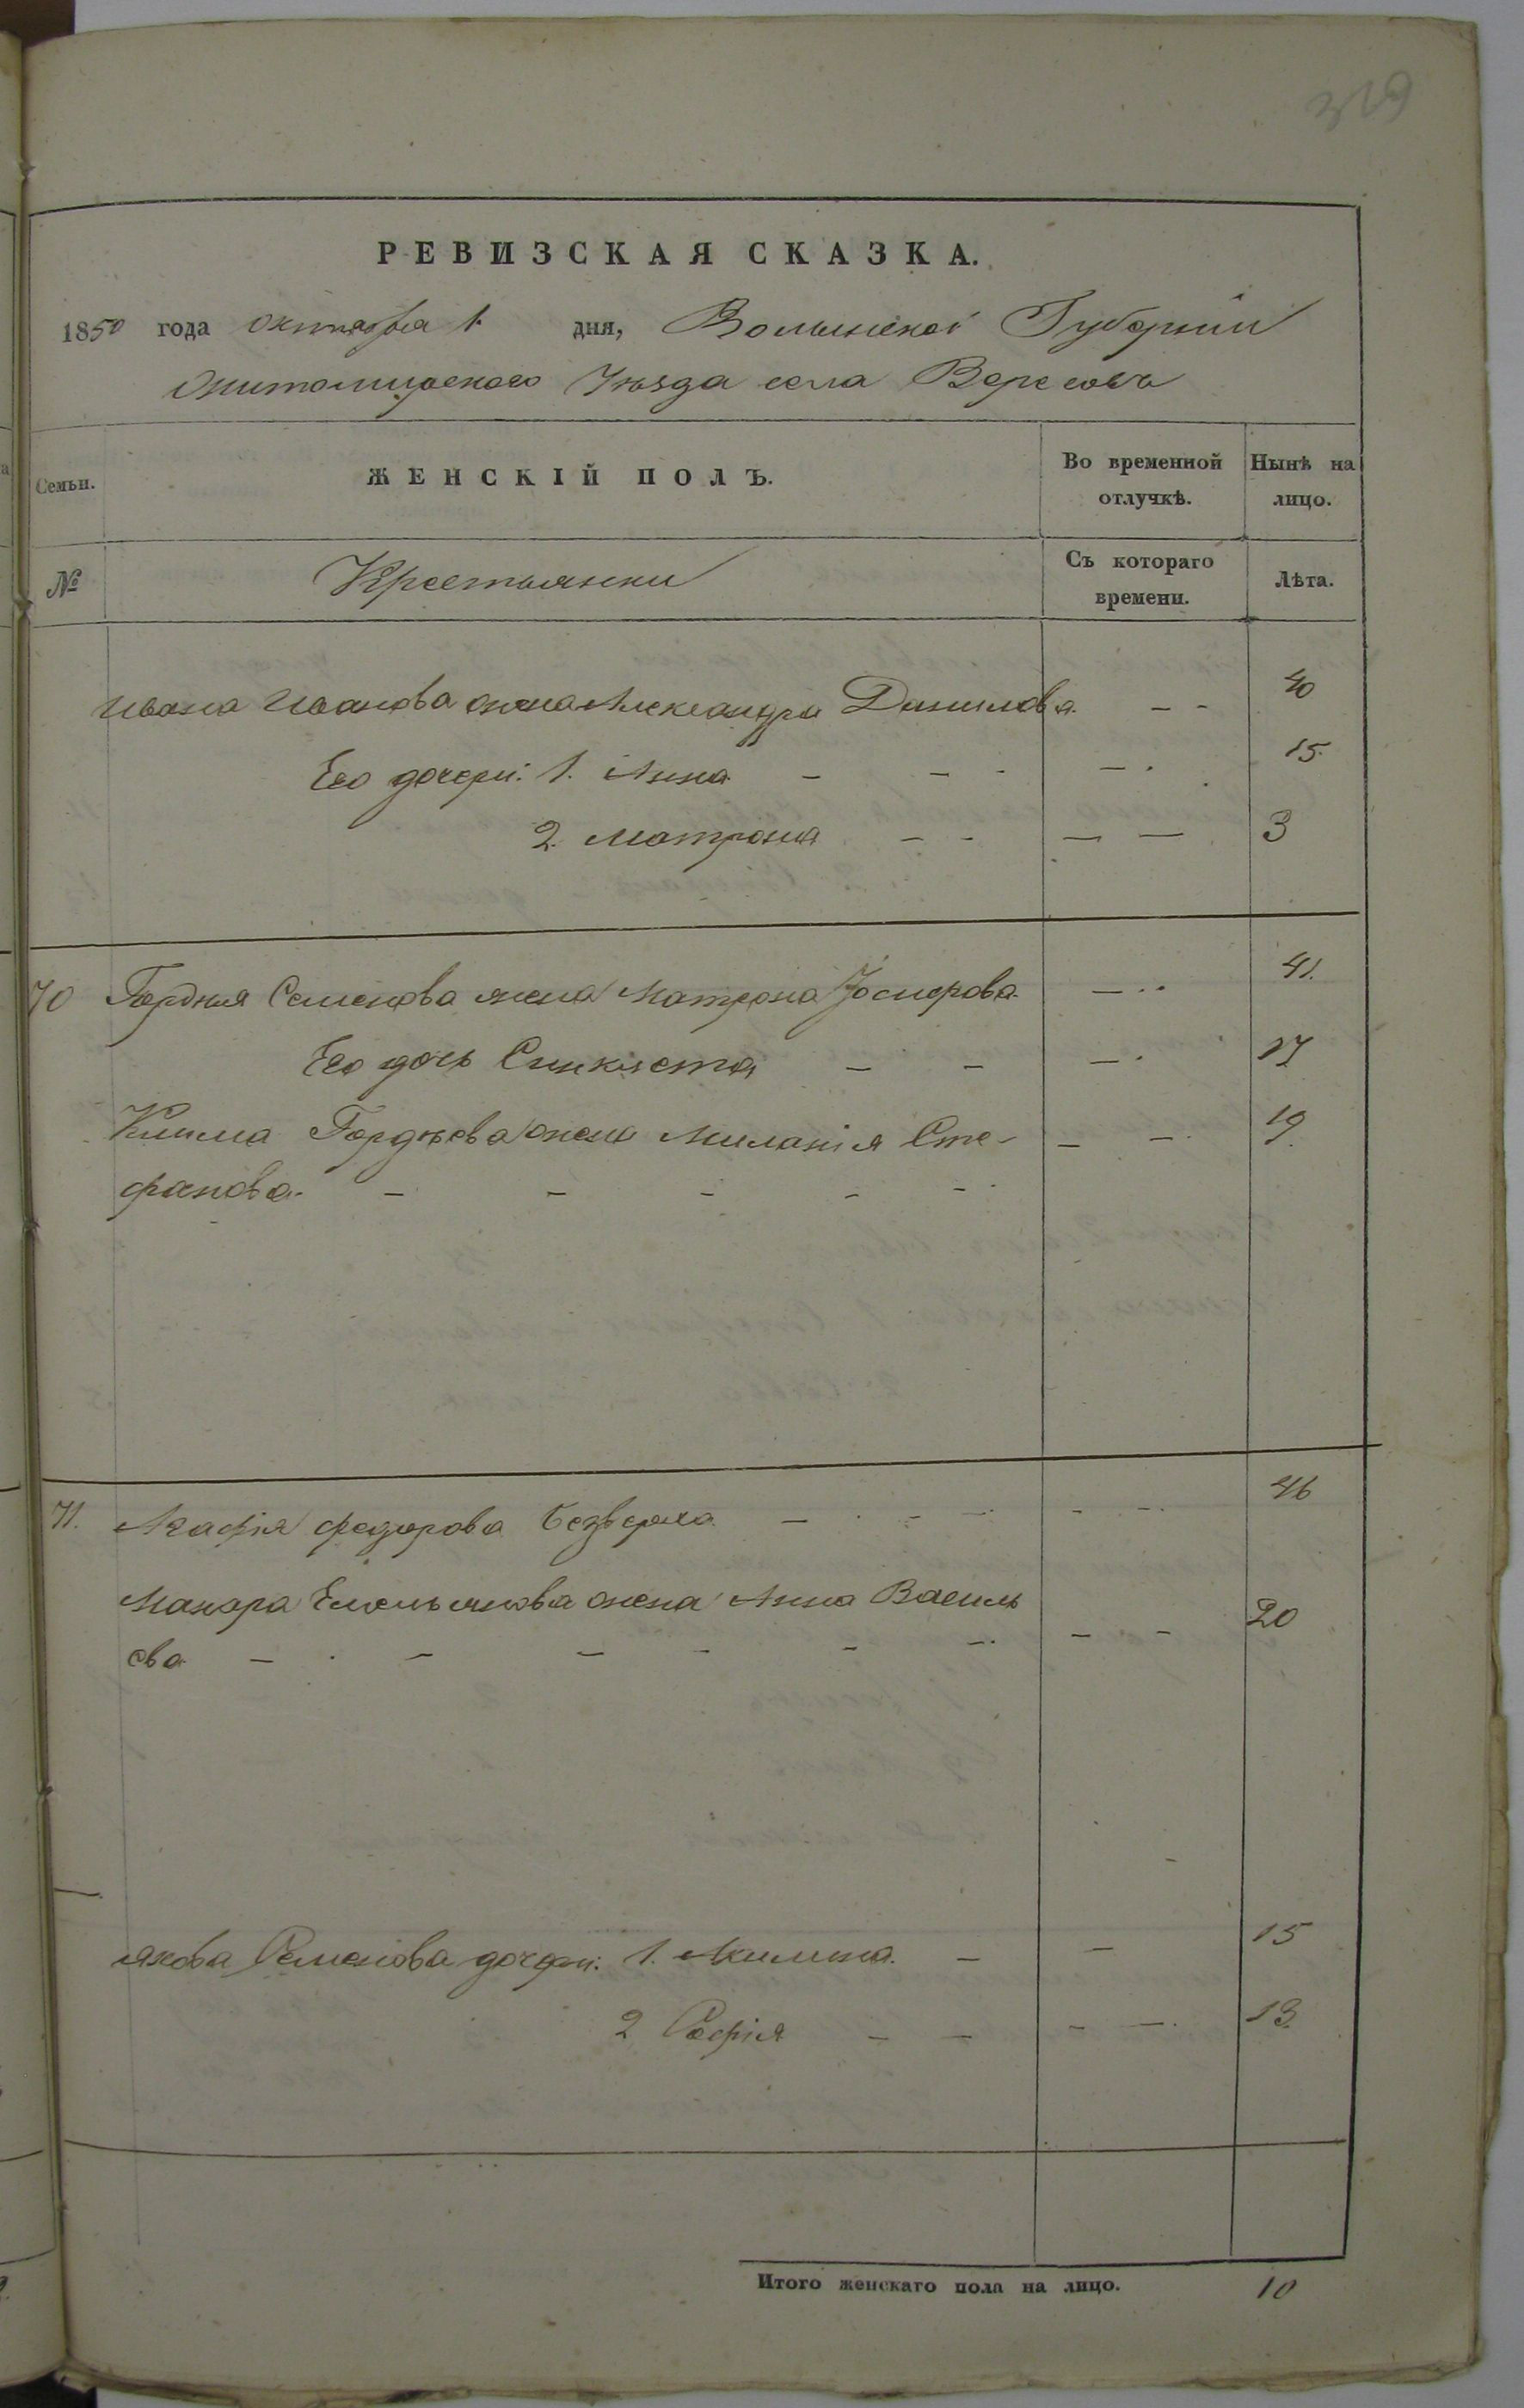 319
РЕВИЗСКАЯ СКАЗКА.
1850 года октября 1. дня, Волынской Губернии
Житомирского Уѣзда села Вересовъ
Семьи. ЖЕНСКІЙ ПОЛЪ. Во временной отлучкѣ. Нынѣ на лицо.
№ Крестьянки Съ котораго времени. Лѣта.
Ивана Иванова жена Александра Данилова - - 40
Его дочери: 1. Анна - - - - . 15.
2. Матрона - - - - 3
70 Гордия Семенова жена Матрона Іосифова - .. 41.
Его дочь Синклета - - - . 17
Клима Гордѣева жена Миланія Сте- - - . 19.
фанова - - - - - .
71. Агафія Федорова Безверха - . - - . - - . 46
Макара Емельянова жена Анна Василь
ева - . - - - - - . - - 20
Якова Семенова дочери: 1. Акилина. - - 15
2 Софія - - - - . 13.
Итого женскаго пола на лицо. 10